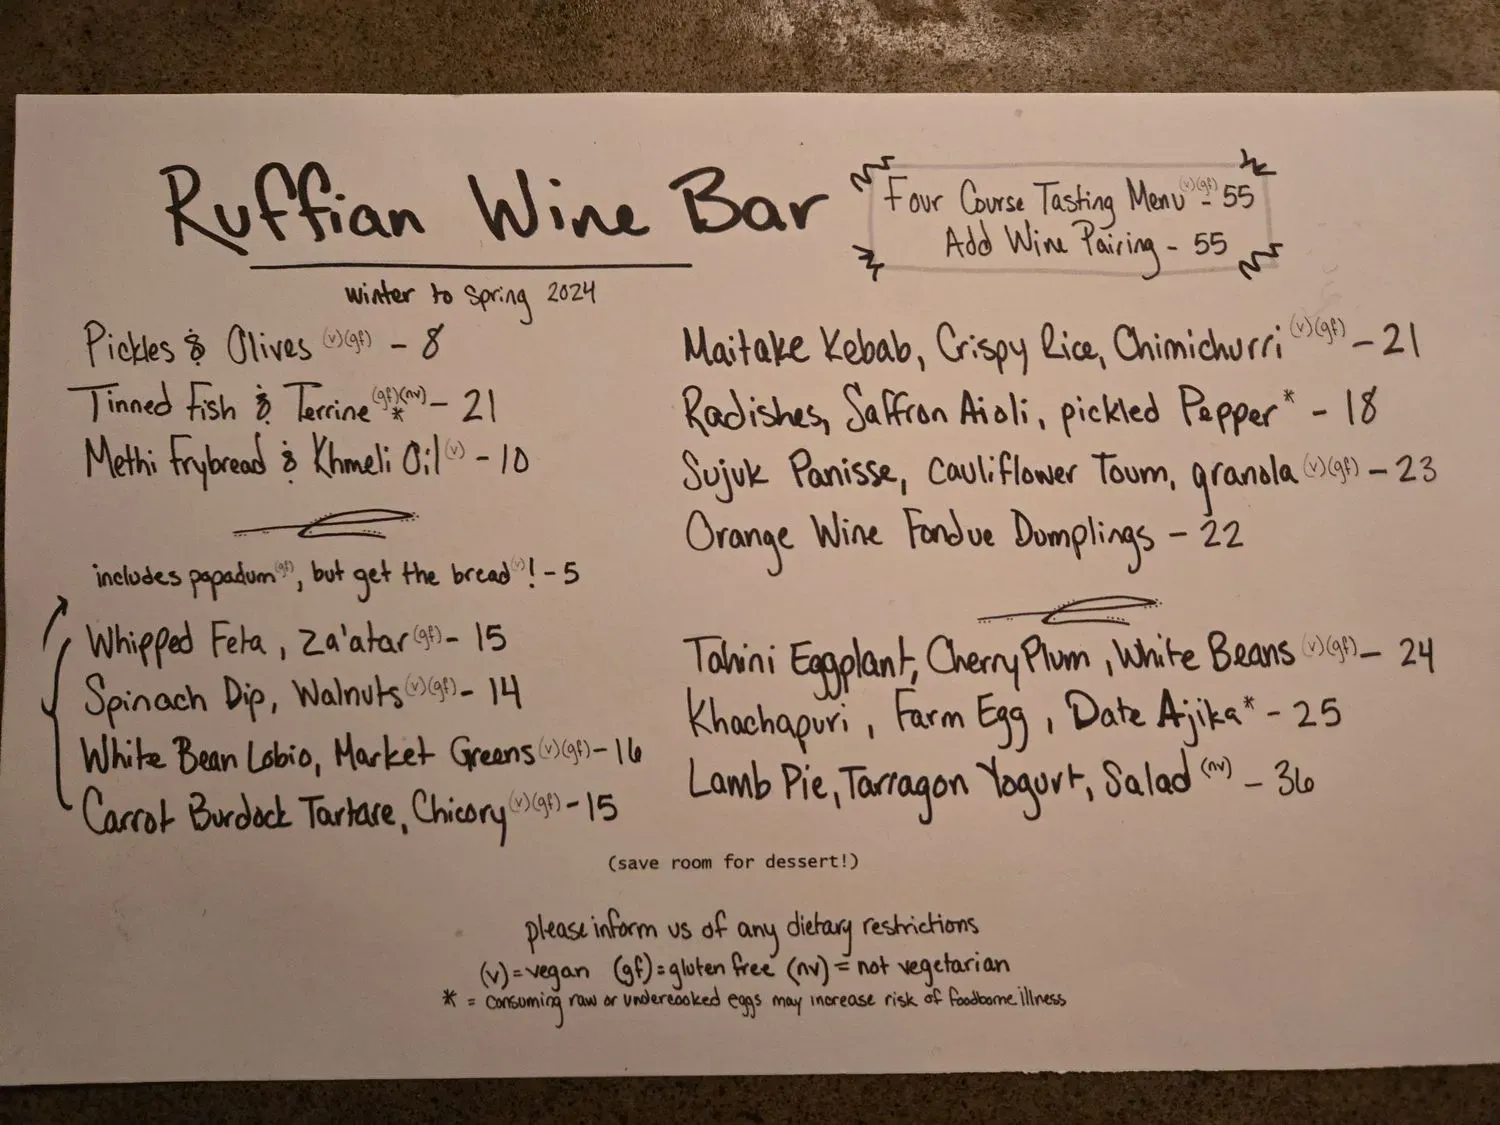 Ruffian Wine Bar
winter to spring 2024
Four Course Tasting Menu (v)(gf) - 55
Add Wine Pairing - 55
Pickles & Olives (v)(gf) - 8
Tinned Fish & Terrine (gf)(nv)* - 21
Methi Frybread & Khmeli Oil (v) - 10
includes papadum (gf), but get the bread (v)! - 5
Whipped Feta, Za'atar (gf) - 15
Spinach Dip, Walnuts (v)(gf) - 14
White Bean Lobio, Market Greens (v)(gf) - 16
Carrot Burdock Tartare, Chicory (v)(gf) - 15
Maitake Kebab, Crispy Rice, Chimichurri (v)(gf) - 21
Radishes, Saffron Aioli, pickled Pepper* - 18
Sujuk Panisse, Cauliflower Toum, granola (v)(gf) - 23
Orange Wine Fondue Dumplings - 22
Tahini Eggplant, Cherry Plum, White Beans (v)(gf) - 24
Khachapuri, Farm Egg, Date Ajika* - 25
Lamb Pie, Tarragon Yogurt, Salad (nv) - 36
(save room for dessert!)
please inform us of any dietary restrictions
(v)=vegan (gf)=gluten free (nv)=not vegetarian
* = consuming raw or undercooked eggs may increase risk of foodborne illness